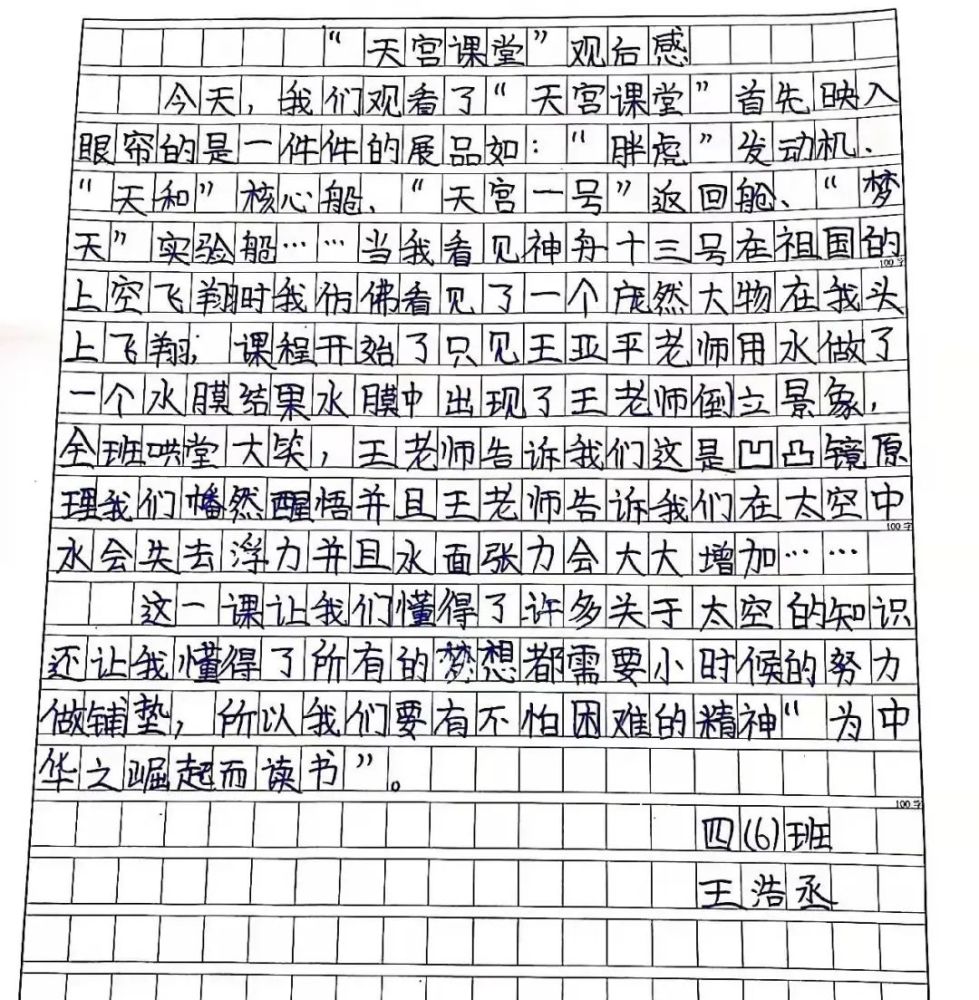 “天宫课堂”观后感
今天，我们观看了“天宫课堂”首先映入
眼帘的是一件件的展品如：“胖虎”发动机、
“天和”核心船、“天宫一号”返回舱、“梦
天”实验船……当我看见神舟十三号在祖国的
100字
上空飞翔时我仿佛看见了一个庞然大物在我头
上飞翔，课程开始了只见王亚平老师用水做了
一个水膜结果水膜中出现了王老师倒立景象，
全班哄堂大笑，王老师告诉我们这是凹凸镜原
理我们幡然醒悟并且王老师告诉我们在太空中
100字
水会失去浮力并且水面张力会大大增加……
这一课让我们懂得了许多关于太空的知识
还让我懂得了所有的梦想都需要小时候的努力
做铺垫，所以我们要有不怕困难的精神“为中
华之崛起而读书”。
100字
四(6)班
王浩丞